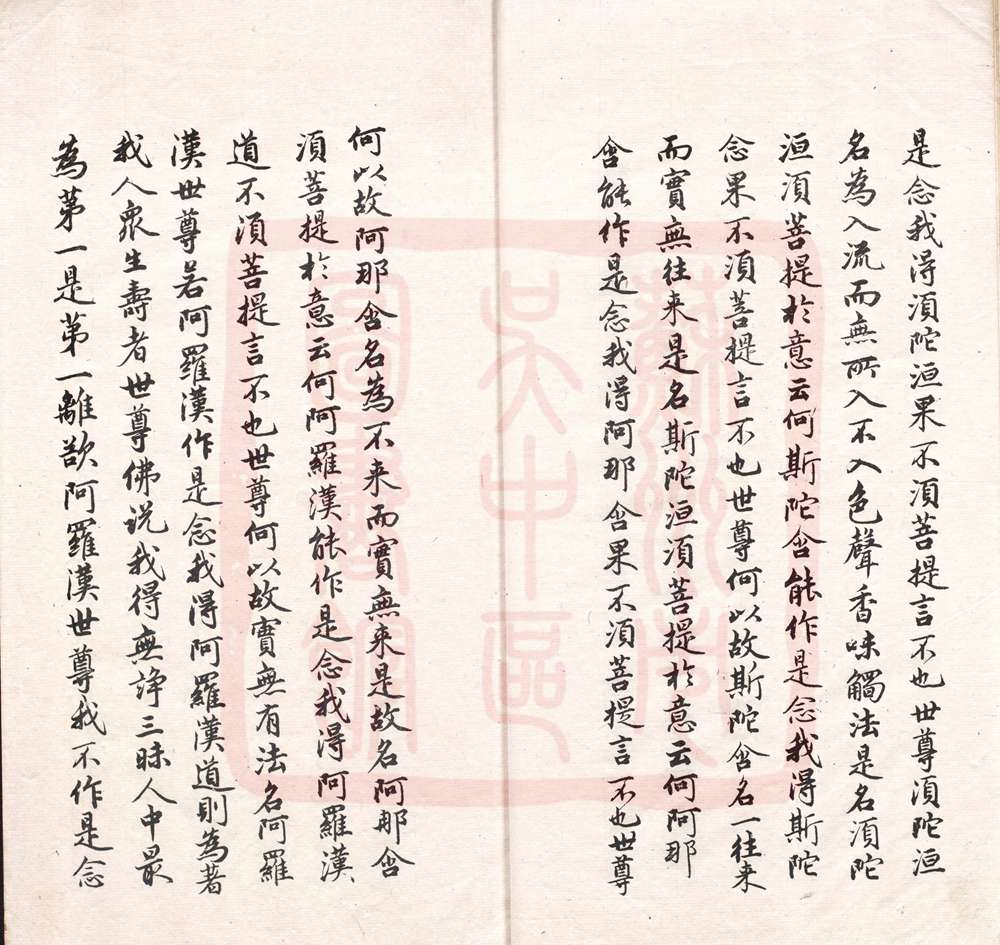 是念我得須陀洹果不須菩提言不也世尊須陀洹
名為入流而無所入不入色聲香味觸法是名須陀
洹須菩提於意云何斯陀含能作是念我得斯陀
念果不須菩提言不也世尊何以故斯陀含名一往来
而實無往来是名斯陀洹須菩提於意云何阿那
含能作是念我得阿那含果不須菩提言不也世尊
何以故阿那含名為不来而實無来是故名阿那含
須菩提於意云何阿羅漢能作是念我得阿羅漢
道不須菩提言不也世尊何以故實無有法名阿羅
漢世尊若阿羅漢作是念我得阿羅漢道則為著
我人衆生壽者世尊佛说我得無諍三昧人中最
為第一是第一離欲阿羅漢世尊我不作是念
蘇州市
吳中區
圖書館